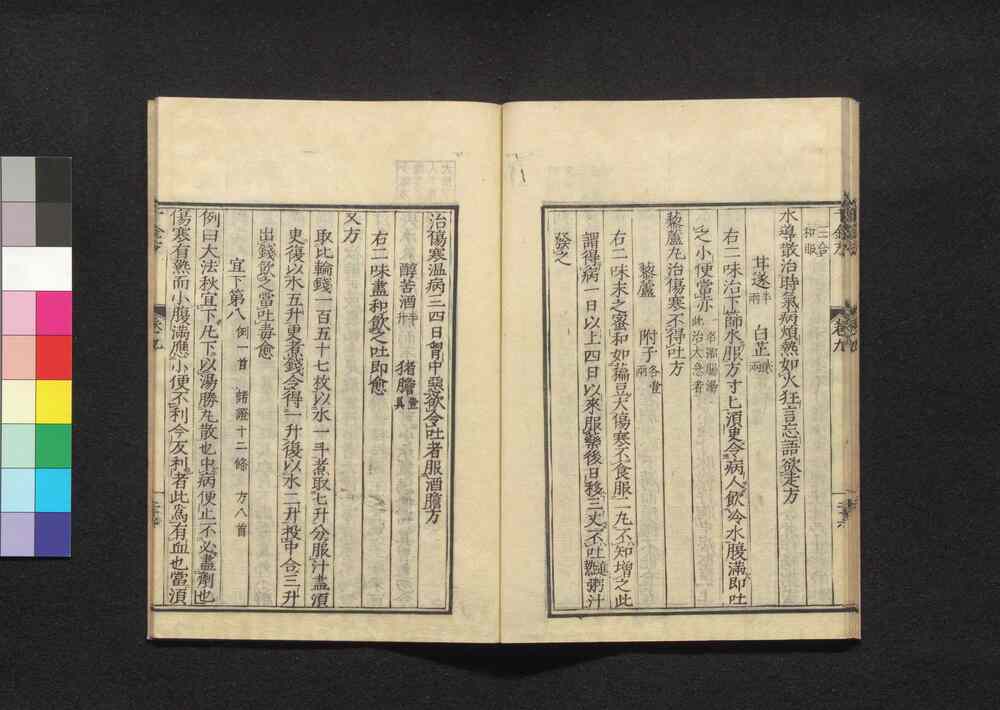 水導散治時氣病煩熱如火狂言忘語欲走方
甘遂半兩 白芷
右二味治下篩水服方寸匕須更令病人飲冷水腹滿即吐
之小便當赤 一名濯腸湯此治大急者
藜蘆丸治傷寒不得吐方
藜蘆 附子各壹兩
右二味末之蜜和如萹豆大傷寒不食服二丸不知增之此
謂得病一日以上四日以來服藥後日移三丈不吐進熱粥汁
發之
治傷寒温病三四日胷中惡欲令吐者服酒膽方
醇苦酒半升 猪膽壹具
右二味盡和飲之吐即愈
又方
取比輪錢一百五十七枚以水一斗煮取七升分服汁盡須
更復以水五升更煮錢令得一升復以水二升投中合三升
出錢飲之當吐毒愈
宜下第八 例一首 諸證十二條 方八首
例曰大法秋宜下凡下以湯勝丸散也中病便止不必盡劑也
傷寒有熱而小腹滿應小便不利今友利者此爲有血也當須